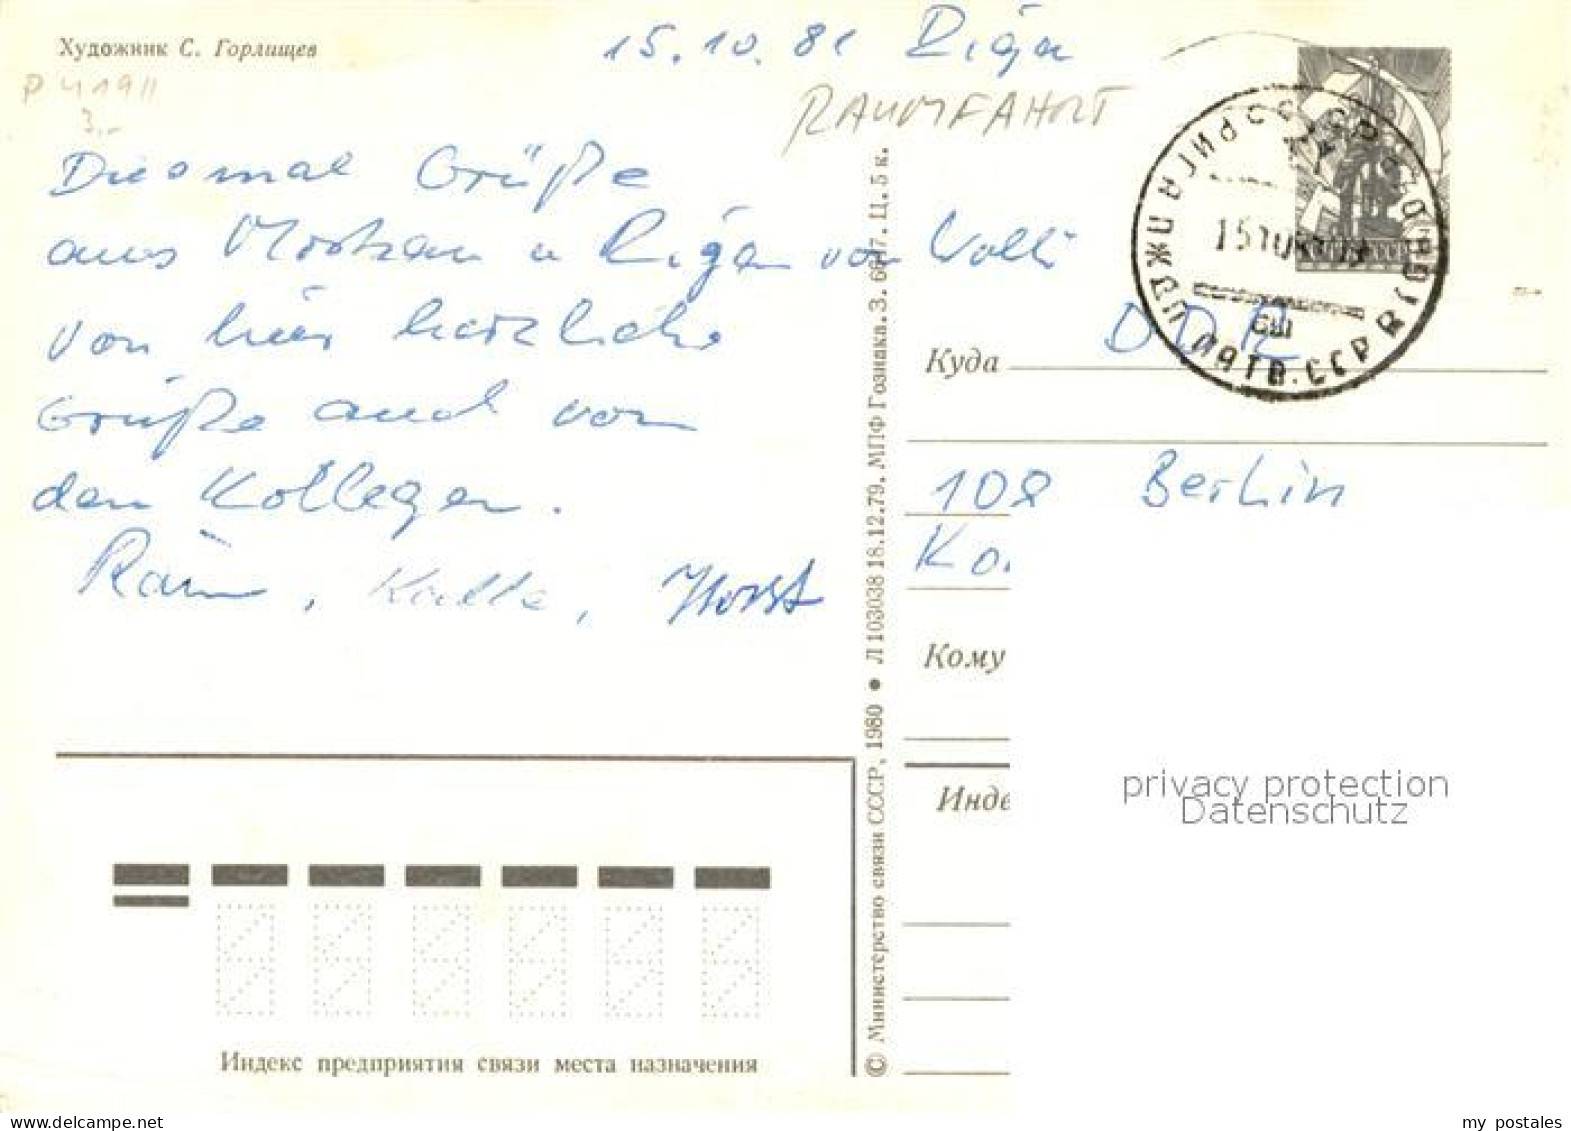 Художник С. Горлищев
15.10.81 Riga
P 41911
3,-
RAUMFAHRT
Diesmal Grüße
aus Moskau u Riga von Volki
von hier herzliche
Grüße auch von
den Kollegen.
Rain, Kalle, Horst
© Министерство связи СССР, 1980 • Л 103038 18.12.79. МПФ Гознака. З. 6647. Ц. 5 к.
РИГА ПЖДП ЛАТВ. ССР
15 10
Куда DDR
108 Berlin
Ko
Кому
Инде
privacy protection
Datenschutz
Индекс предприятия связи места назначения
my postales